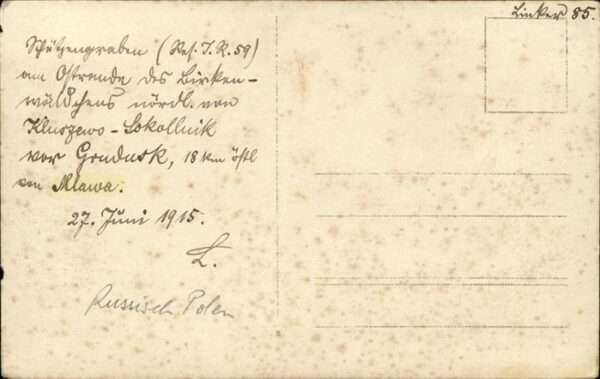 Linker 85.
Schützengraben (Res. I. R. 59)
am Ostrande des Birken-
wäldchens nördl. von
Kluszewo - Sokollnik
vor Grudusk, 18 km östl
von Mlawa.
27. Juni 1915.
L.
Russisch Polen